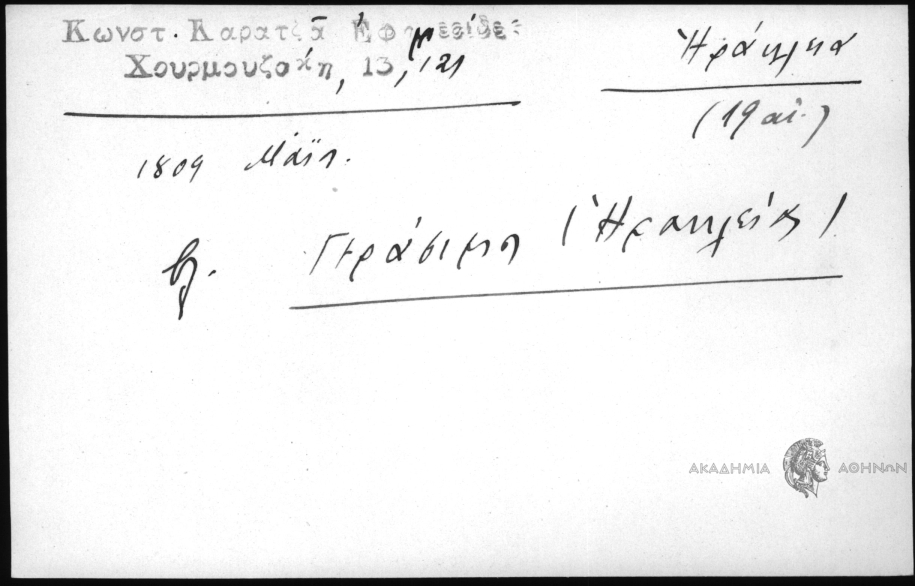 Κωνστ. Καρατζᾶ Ἐφημερίδες
Χουρμουζάκη, 13, 121
Ἡράκλεια
(19 αἰ.)
1809 Μάϊη.
βλ. Γεράσιμη (Ἡρακλείας)
ΑΚΑΔΗΜΙΑ ΑΘΗΝΩΝ